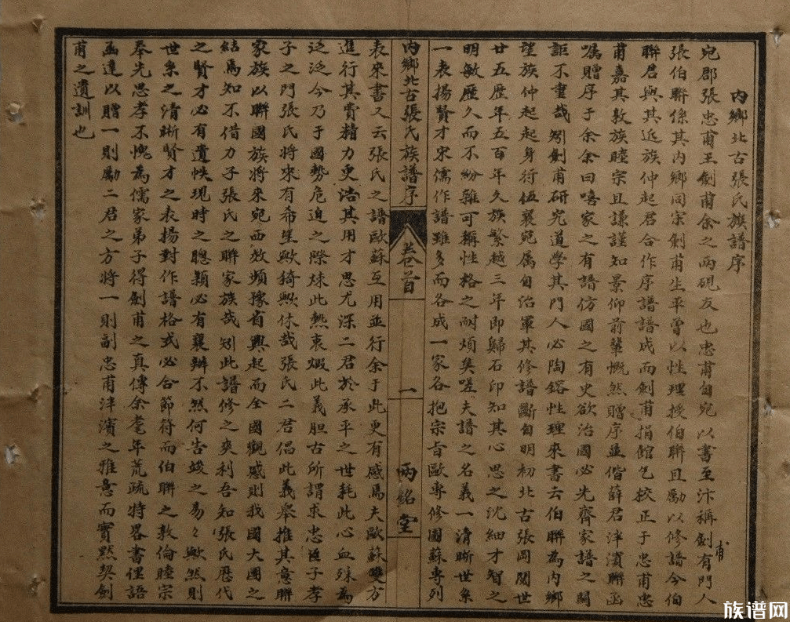 內鄉北古張氏族譜序
宛郡張忠甫王劍甫余之兩硯友也忠甫自宛以書至汴稱劍有門人
甫
張伯聯係其內鄉同宗劍甫生平曾以性理授伯聯且勵以修譜今伯
聯君與其近族仲起君合作序譜譜成而劍甫捐館乞校正于忠甫忠
甫嘉其敦族睦宗且謙謹知景仰前輩慨然贈序並偕薛君泮濱聯函
囑贈序于余余曰嘻家之有譜仿國之有史欲治國必先齊家譜之關
詎不重哉矧劍甫研究道學其門人必陶鎔性理來書云伯聯為內鄉
望族仲起起身行伍襄宛屬自治軍其修譜斷自明初北古張岡閱世
廿五歷年五百年久族繁越三年即歸石印知其心思之沈細才智之
明敏歷久而不紛雜可稱性格之耐煩矣嗟夫譜之名義一清晰世系
一表揚賢才宋儒作譜雖多而各成一家各抱宗旨歐專修圖蘇專列
內鄉北古張氏族譜序
卷首
一
兩銘堂
表來書又云張氏之譜歐蘇互用並行余于此更有感焉夫歐蘇雙方
進行其費精力更浩其用才思尤深二君於承平之世耗此心血殊為
泛泛今乃于國勢危迫之際殊此熱衷煅此義胆古所謂求忠臣子孝
子之門張氏將來有希望歟猗歟休哉張氏二君倡此義舉推其意聯
家族以聯國族將來宛西效頻接省興起而全國觀感則我國大國之
結焉知不借力子張氏之聯家族哉矧此譜修之爽利吾知張氏歷代
之賢才必有遺軼現時之聰穎必有襄辦不然何告竣之易易歟然則
世系之清晰賢才之表揚對作譜格式必合節符而伯聯之敦倫睦宗
奉先思孝不愧為儒家弟子得劍甫之真傳余耄年荒疏特畧書俚語
函達以贈一則勵二君之方將一則副忠甫泮濱之雅意而實默契劍
甫之遺訓也
族谱网